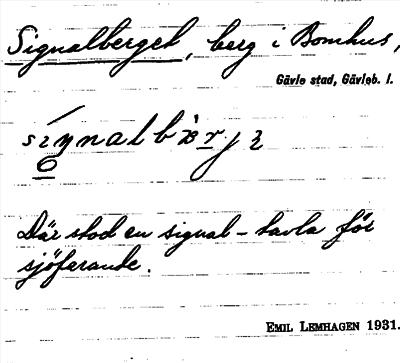 Signalberget, berg i Bomhus,
Gävle stad, Gävleb. l.
Där stod en signal-tavla för
sjöferande.
EMIL LEMHAGEN 1931.